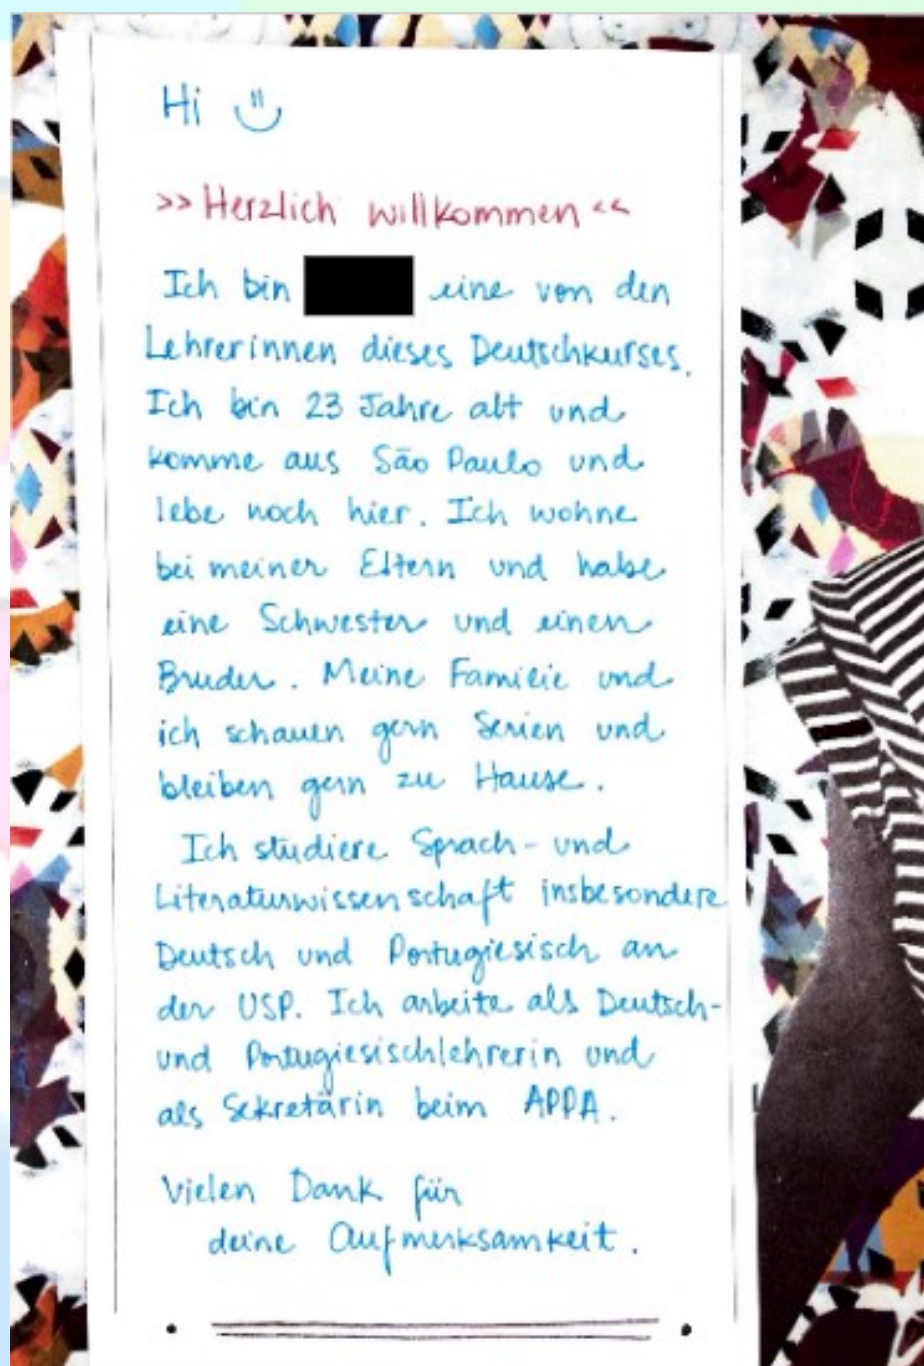 Hi
>> Herzlich willkommen <<
Ich bin eine von den
Lehrerinnen dieses Deutschkurses.
Ich bin 23 Jahre alt und
komme aus São Paulo und
lebe noch hier. Ich wohne
bei meiner Eltern und habe
eine Schwester und einen
Bruder. Meine Familie und
ich schauen gern Serien und
bleiben gern zu Hause.
Ich studiere Sprach- und
Literaturwissenschaft insbesondere
Deutsch und Portugiesisch an
der USP. Ich arbeite als Deutsch-
und Portugiesischlehrerin und
als Sekretärin beim APPA.
Vielen Dank für
deine Aufmerksamkeit.